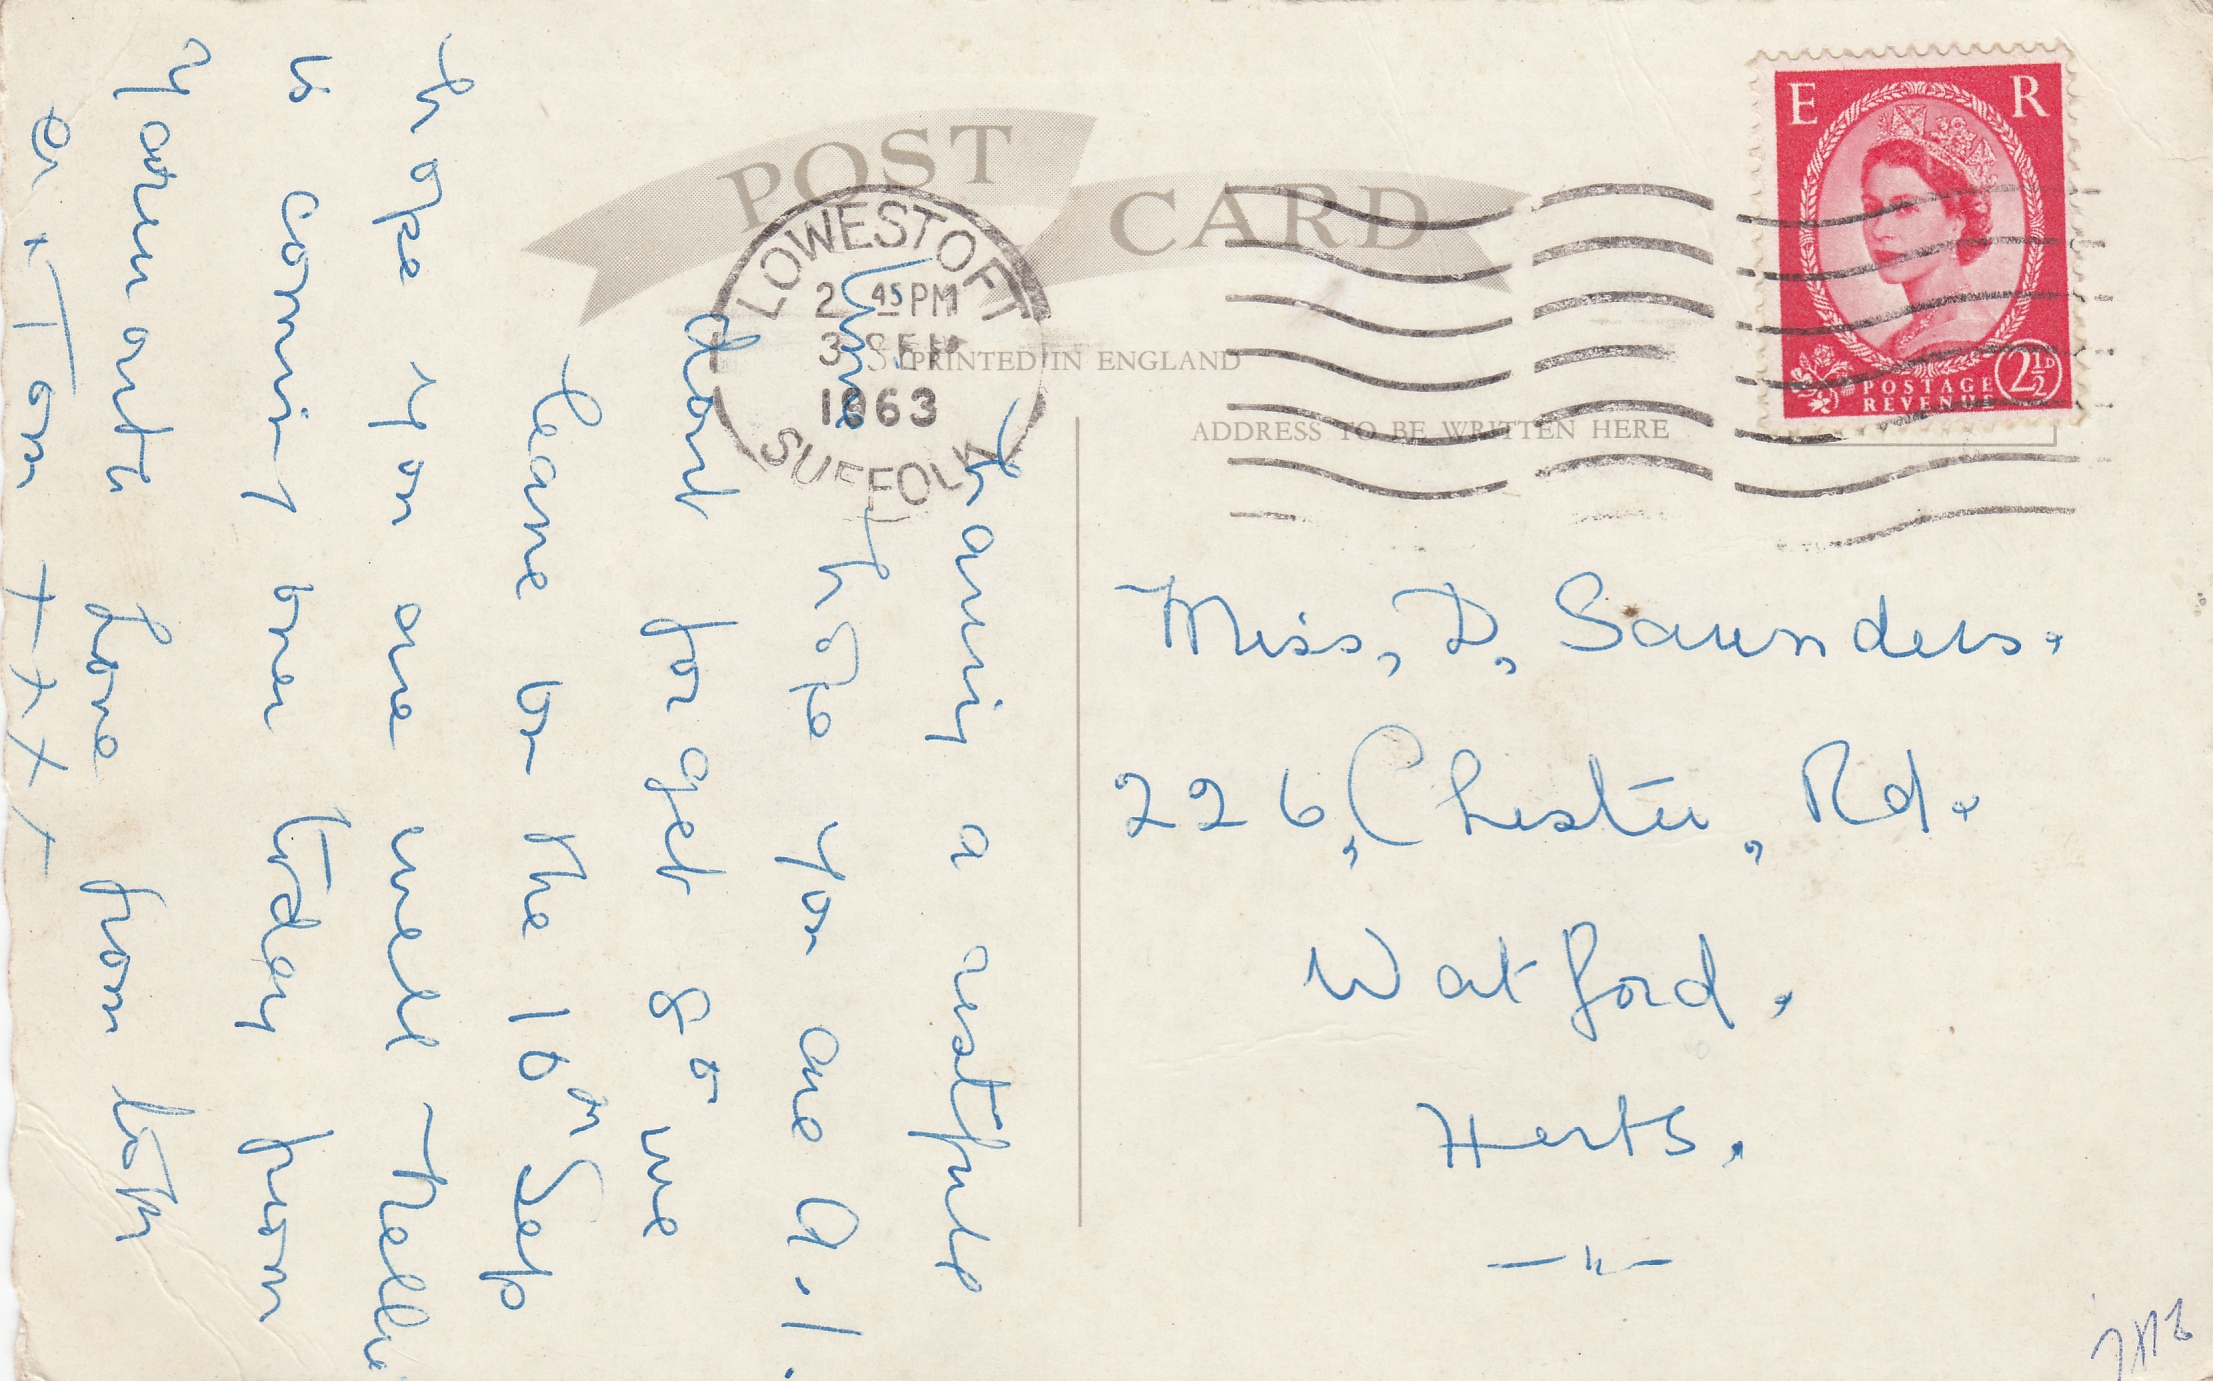 POST CARD
LOWESTOFT
2 45 PM
3 SEP
1963
SUFFOLK
PRINTED IN ENGLAND
ADDRESS TO BE WRITTEN HERE
E R
POSTAGE
REVENUE
2½D
Having a restfull
time hope you are A.1.
dont for get so we
leave on the 10th Sep
hope you are well Nellie
is coming over today from
Yarmouth Love from both
Miss, D, Saunders.
226, Chester, Rd.
Watford.
Herts.